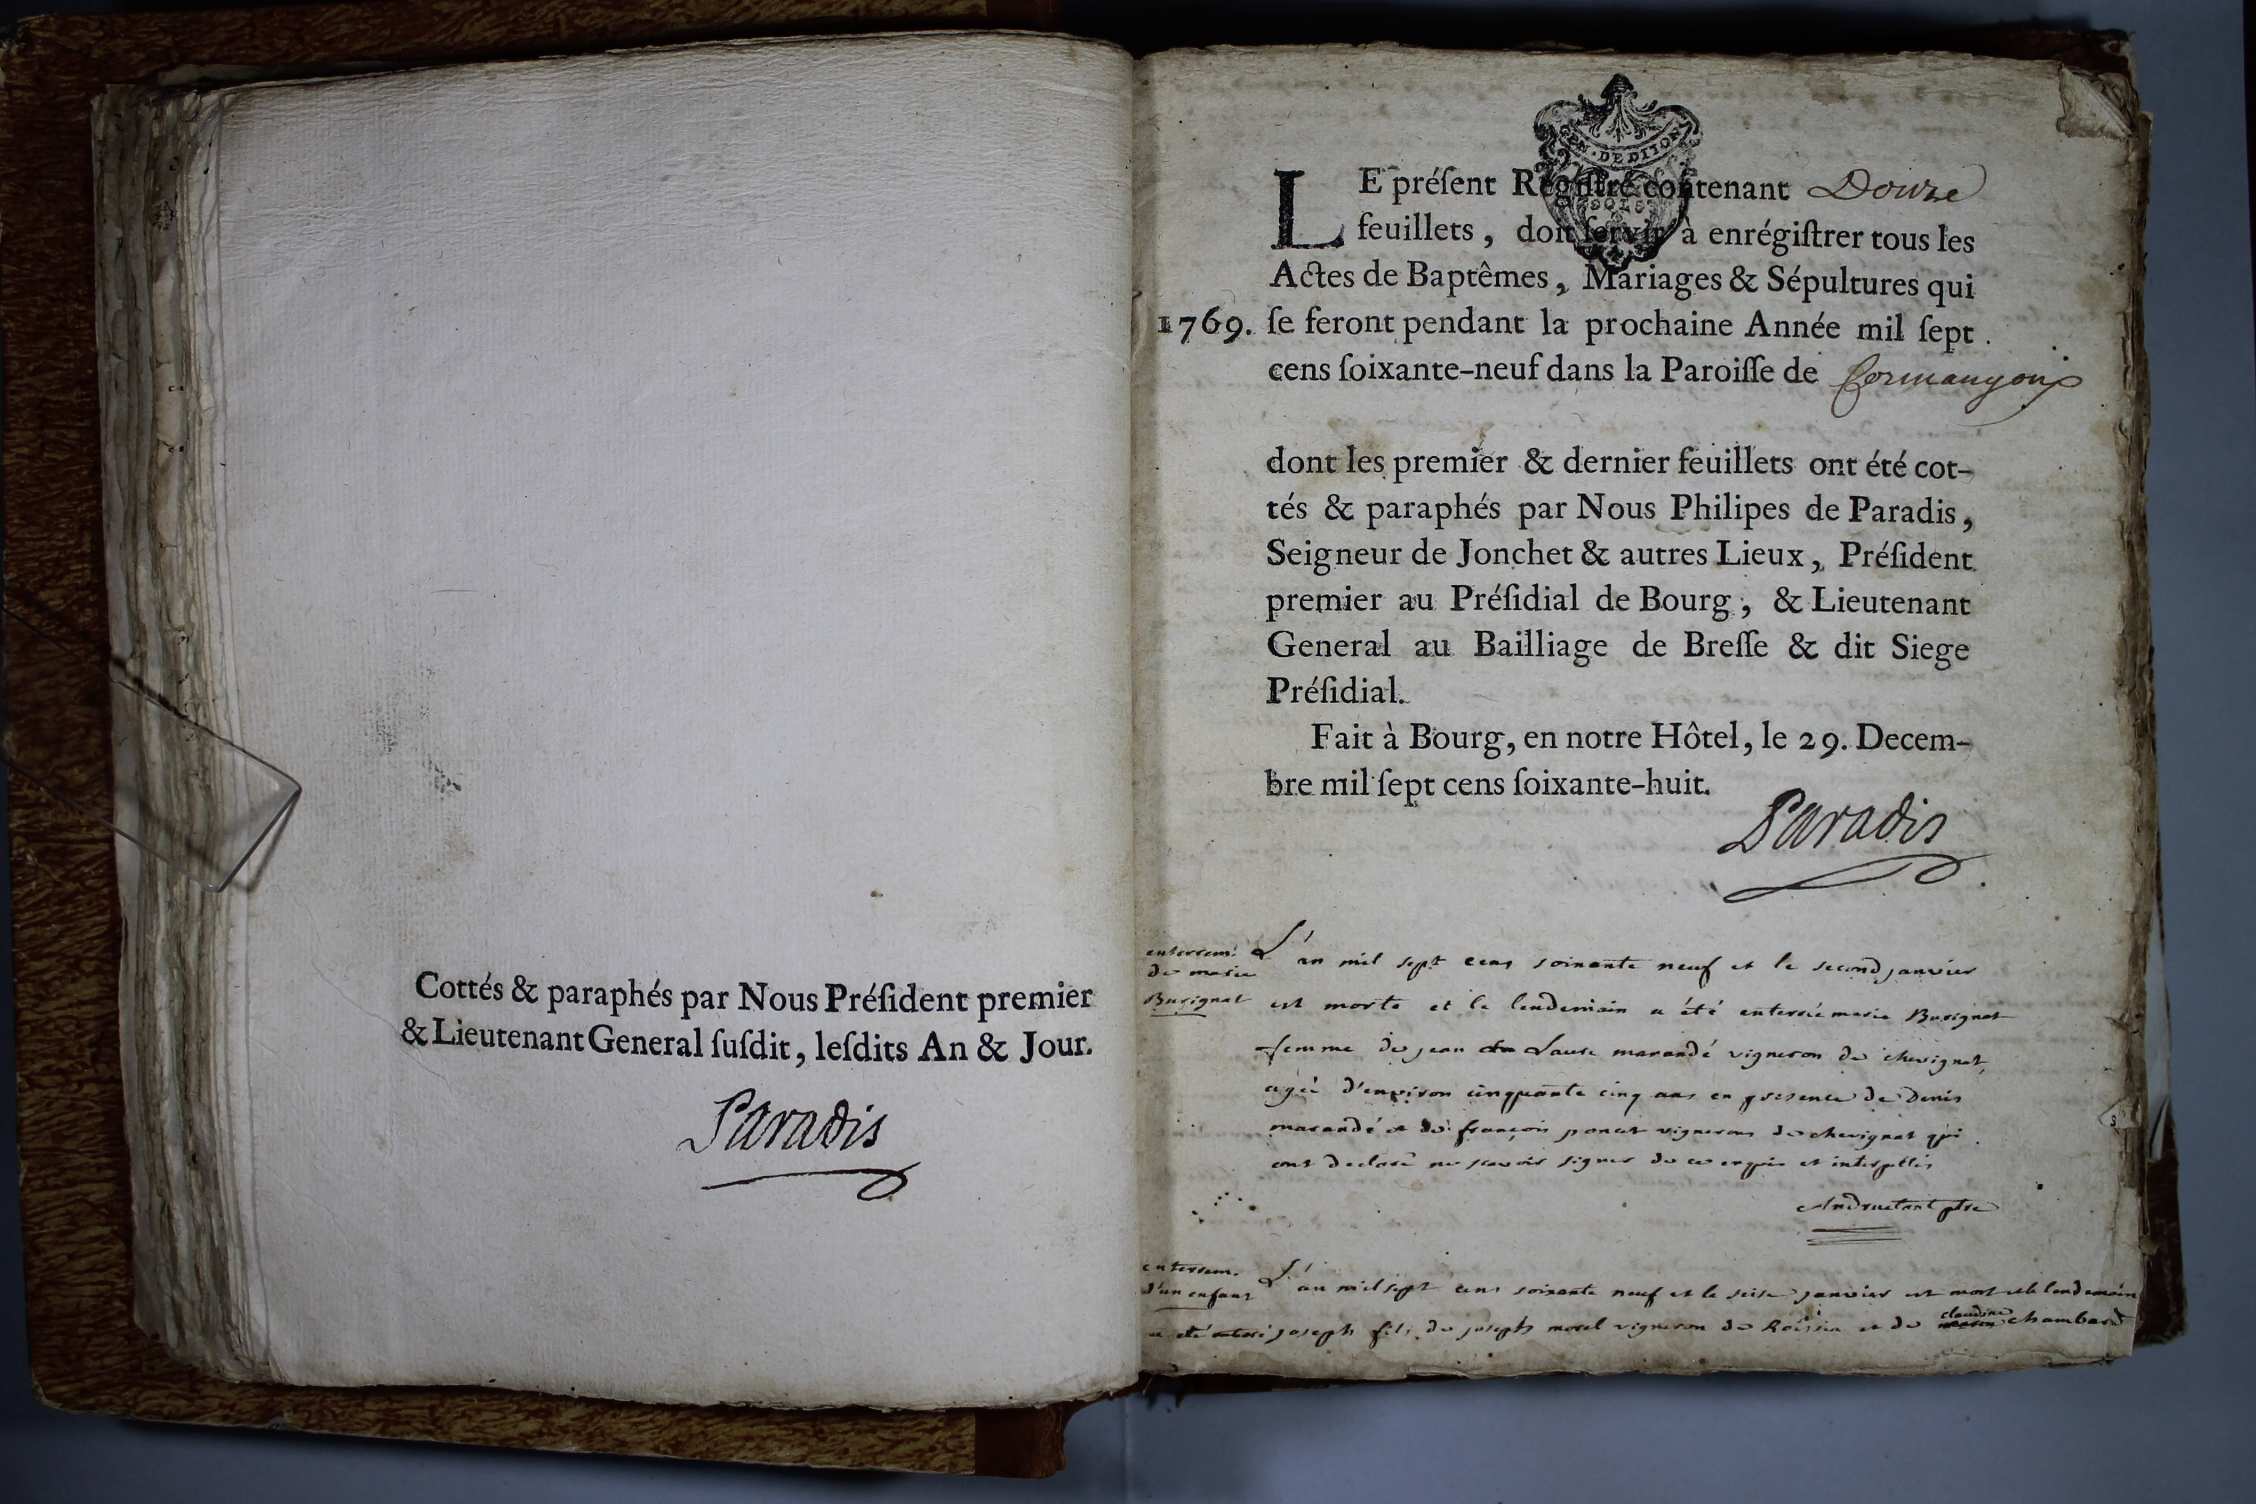 Cottés & paraphés par Nous Préſident premier
& Lieutenant General ſuſdit, leſdits An & Jour.
Paradis
GEN · DE DIJON
LE préſent Regiſtre contenant Douze
feuillets, doit ſervir à enrégiſtrer tous les
Actes de Baptêmes, Mariages & Sépultures qui
1769. ſe feront pendant la prochaine Année mil ſept
cens ſoixante-neuf dans la Paroiſſe de Cormangoux
dont les premier & dernier feuillets ont été cot-
tés & paraphés par Nous Philipes de Paradis,
Seigneur de Jonchet & autres Lieux, Préſident
premier au Préſidial de Bourg, & Lieutenant
General au Bailliage de Breſſe & dit Siege
Préſidial.
Fait à Bourg, en notre Hôtel, le 29. Decem-
bre mil ſept cens ſoixante-huit.
Paradis
enterrem.
de marie
Burignat
L'an mil sept cens soixante neuf et le second janvier
est morte et le lendemain a été enterrée marie Burignat
femme de jean Laure marandé vigneron de chevignat,
agée d'environ cinquante cinq ans en presence de Denis
marandé et de françois poncet vignerons de chevignat qui
ont declaré ne scavoir signer de ce enquis et interpellés
ptre
enterrem.
d'un enfant
L'an mil sept cens soixante neuf et le seise janvier est mort et le lendemain
a été enterré joseph fils de joseph morel vigneron de Roissia et de claudine chambard